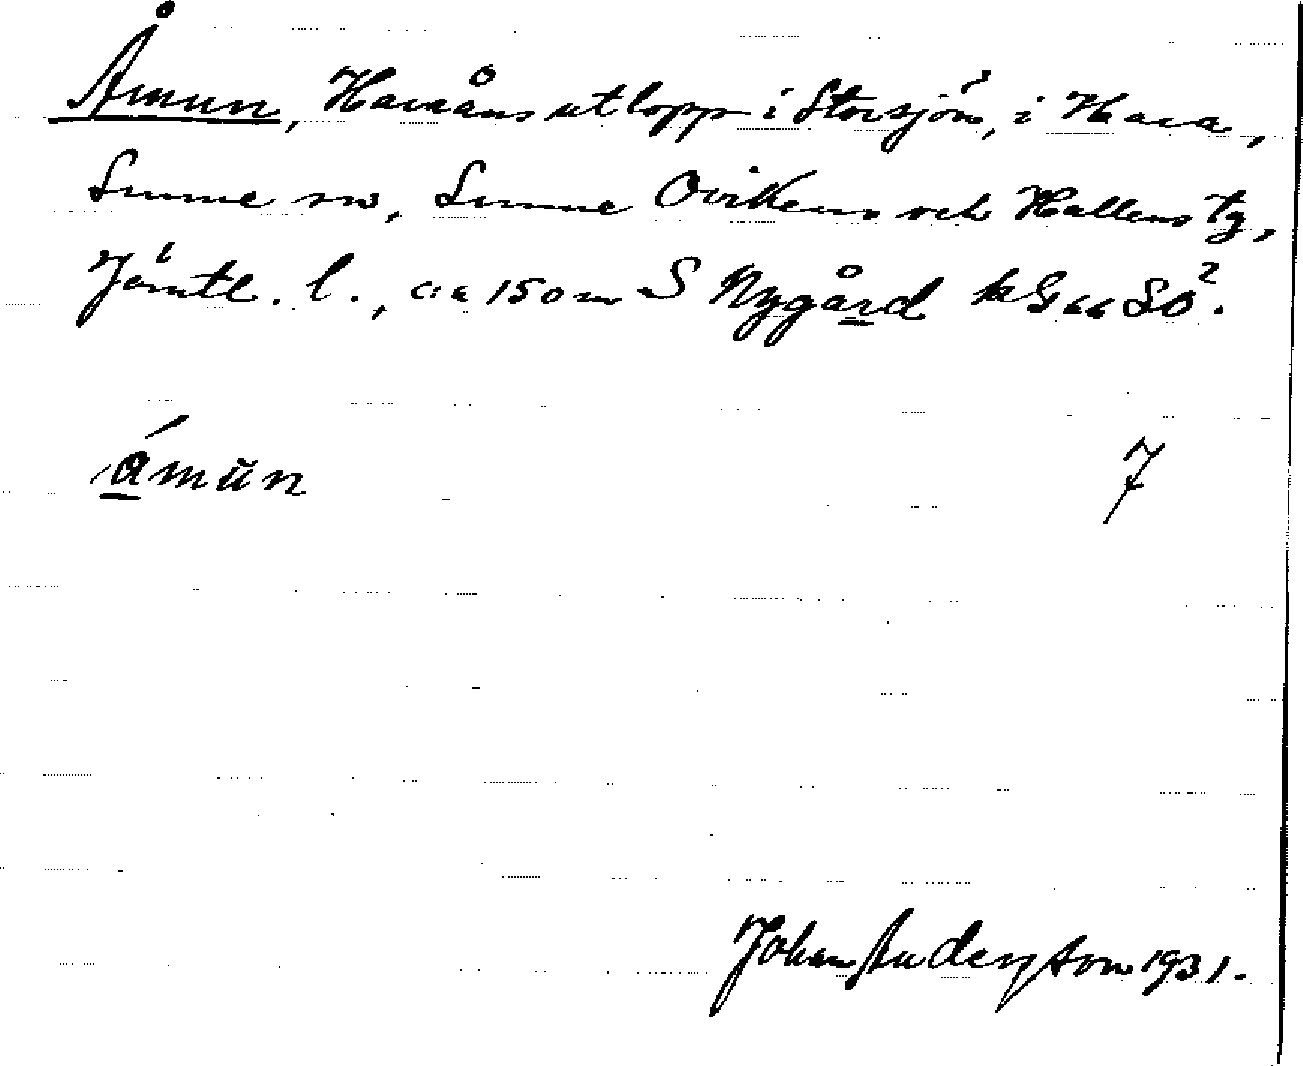 Åmun, Haraåns utlopp i Storsjön, i Hara,
Sunne sn, Sunne Ovikens och Hallens tg,
Jämtl. l., ca 150 m S Nygård kG66SO².
åmun 7
Johan Anderson 1931.